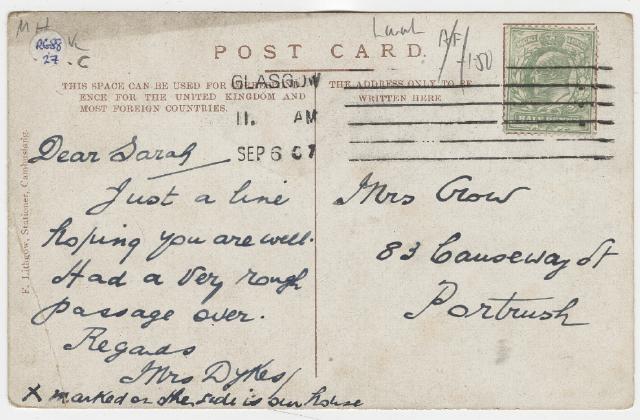 M H
RG88
27
C
Local
1-50
POST CARD.
THIS SPACE CAN BE USED FOR
ENCE FOR THE UNITED KINGDOM AND
MOST FOREIGN COUNTRIES.
THE ADDRESS ONLY TO BE
WRITTEN HERE
GLASGOW
11. AM
SEP 6 07
HALF
F. Lithgow, Stationer, Cambuslang.
Dear Sarah
Just a line
hoping you are well.
Had a very rough
passage over.
Regards
Mrs Dykes
X marked on the side is our house
Mrs Crow
83 Causeway St
Portrush